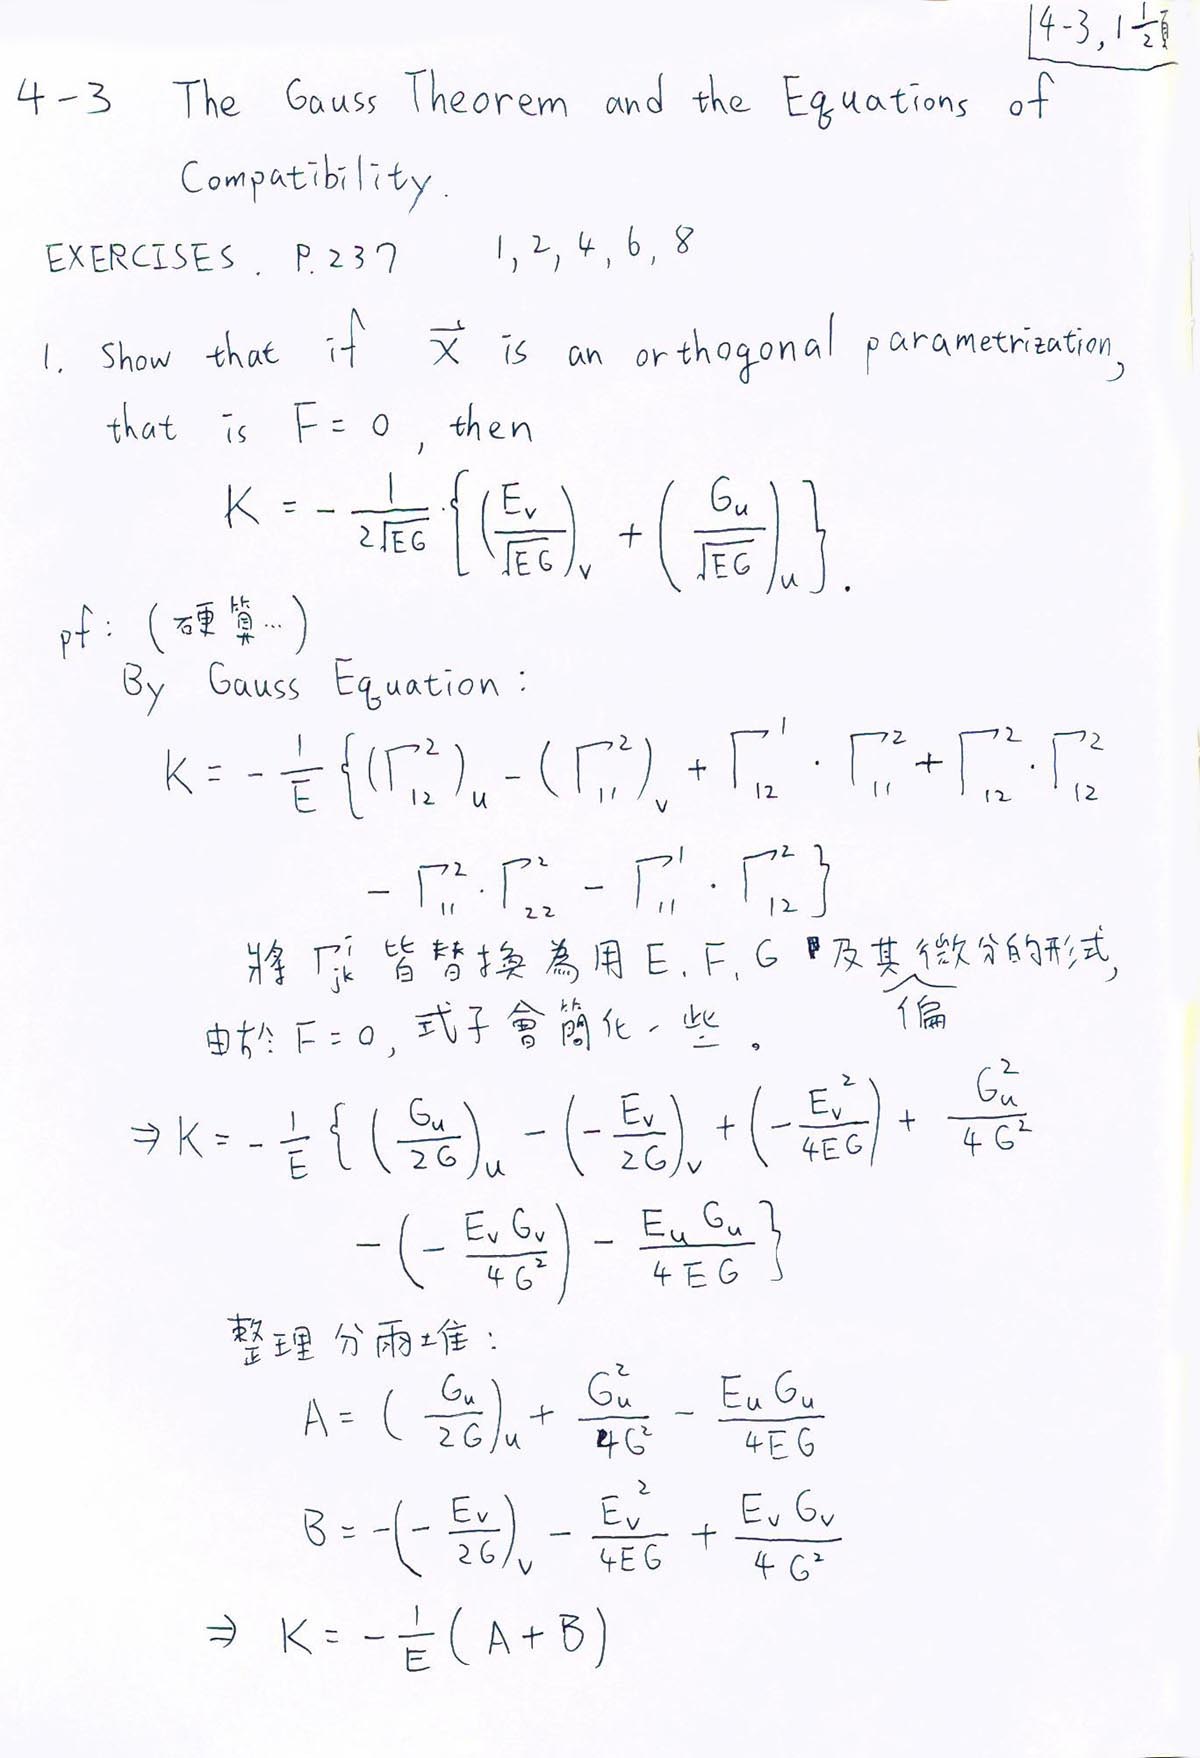 4-3, 1 1/2頁
4-3 The Gauss Theorem and the Equations of
Compatibility.
EXERCISES. P.237 1, 2, 4, 6, 8
1. Show that if \vec{x} is an orthogonal parametrization,
that is F = 0, then
K = -\frac{1}{2\sqrt{EG}} \cdot \left\{ \left( \frac{E_v}{\sqrt{EG}} \right)_v + \left( \frac{G_u}{\sqrt{EG}} \right)_u \right\}.
pf: (硬算...)
By Gauss Equation:
K = -\frac{1}{E} \left\{ (\Gamma_{12}^2)_u - (\Gamma_{11}^2)_v + \Gamma_{12}^1 \cdot \Gamma_{11}^2 + \Gamma_{12}^2 \cdot \Gamma_{12}^2
- \Gamma_{11}^2 \cdot \Gamma_{22}^2 - \Gamma_{11}^1 \cdot \Gamma_{12}^2 \right\}
將 \Gamma_{jk}^i 皆替換為用 E, F, G 及其偏微分的形式,
由於 F = 0, 式子會簡化一些。
⇒ K = -\frac{1}{E} \left\{ \left( \frac{G_u}{2G} \right)_u - \left( -\frac{E_v}{2G} \right)_v + \left( -\frac{E_v^2}{4EG} \right) + \frac{G_u^2}{4G^2}
- \left( -\frac{E_v G_v}{4G^2} \right) - \frac{E_u G_u}{4EG} \right\}
整理分兩堆:
A = \left( \frac{G_u}{2G} \right)_u + \frac{G_u^2}{4G^2} - \frac{E_u G_u}{4EG}
B = -\left( -\frac{E_v}{2G} \right)_v - \frac{E_v^2}{4EG} + \frac{E_v G_v}{4G^2}
⇒ K = -\frac{1}{E} (A + B)